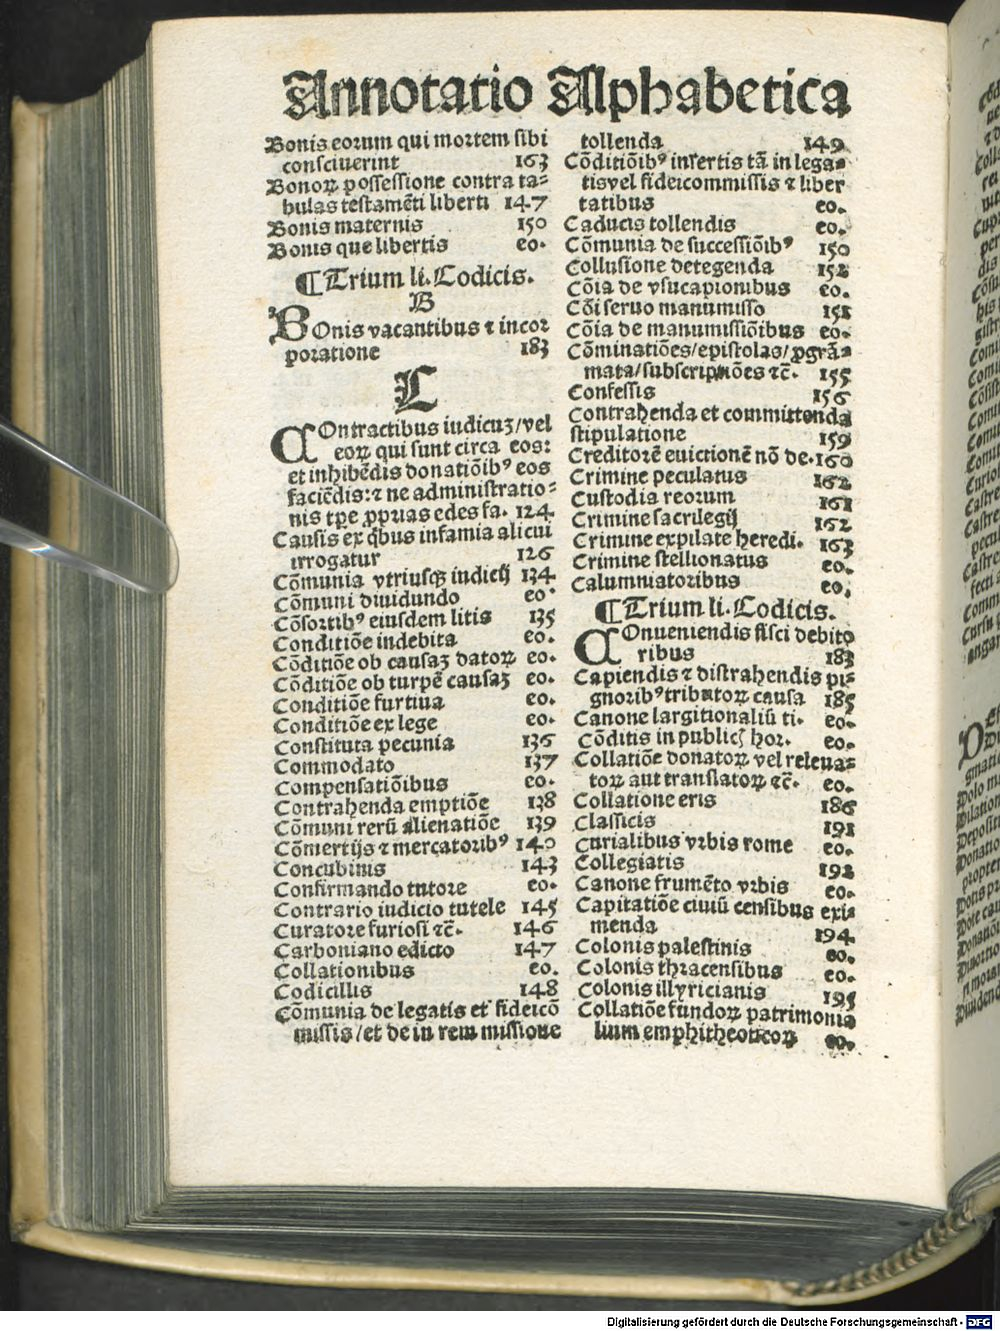 Annotatio Alphabetica
Bonis eorum qui mortem sibi
consciuerint 163
Bonoꝝ possessione contra ta⸗
bulas testamēti liberti 147
Bonis maternis 150
Bonis que libertis eo.
¶ Trium li. Codicis.
B
BOnis vacantibus ⁊ incor
poratione 183
C
COntractibus iudicuꝫ/vel
eoꝝ qui sunt circa eos:
et inhibēdis donatiōibꝰ eos
faciēdis:⁊ ne administratio⸗
nis tꝑe ꝓpꝛias edes fa. 124.
Causis ex qͥbus infamia alicui
irrogatur 126
Cōmunia vtriusqꝫ iudicij 134
Cōmuni diuidundo eo.
Cōsortibꝰ eiusdem litis 135
Conditiōe indebita eo.
Cōditiōe ob causaꝫ datoꝝ eo.
Cōditiōe ob turpē causaꝫ eo.
Conditiōe furtiua eo.
Conditiōe ex lege eo.
Constituta pecunia 136
Commodato 137
Compensatiōibus eo.
Contrahenda emptiōe 138
Cōmuni rerū alienatiōe 139
Cōmertijs ⁊ mercatoribꝰ 140
Concubinis 143
Confirmando tutore eo.
Contrario iudicio tutele 145
Curatore furiosi ⁊c̄. 146
Carboniano edicto 147
Collationibus eo.
Codicillis 148
Cōmunia de legatis et fideicō
missis/et de in rem missione
tollenda 149
Cōditiōibꝰ insertis tā in lega⸗
tis vel fideicommissis ⁊ liber
tatibus eo.
Caducis tollendis eo.
Cōmunia de successiōibꝰ 150
Collusione detegenda 152
Cōia de vsucapionibus eo.
Cōi seruo manumisso 151
Cōia de manumissiōibus eo.
Cōminatiōes/epistolas/ꝓgrā⸗
mata/subscriptiōes ⁊c̄. 155
Confessis 156
Contrahenda et committenda
stipulatione 159
Creditorē euictionē nō de. 160
Crimine peculatus 162
Custodia reorum 161
Crimine sacrilegij 162
Crimine expilate heredi. 163
Crimine stellionatus eo.
Calumniatoribus eo.
¶ Trium li. Codicis.
COnueniendis fisci debito
ribus 183
Capiendis ⁊ distrahendis pi⸗
gnoribꝰ tributoꝝ causa 185
Canone largitionaliū ti. eo.
Cōditis in publicis hor. eo.
Collatiōe donatoꝝ vel releua⸗
toꝝ aut translatoꝝ ⁊c̄. eo.
Collatione eris 186
Classicis 191
Curialibus vrbis rome eo.
Collegiatis 192
Canone frumēto vrbis eo.
Capitatiōe ciuiū censibus exi⸗
menda 194
Colonis palestinis eo.
Colonis thracensibus eo.
Colonis illyricianis 195
Collatiōe fundoꝝ patrimonia
lium emphitheoticoꝝ eo.
Digitalisierung gefördert durch die Deutsche Forschungsgemeinschaft - DFG